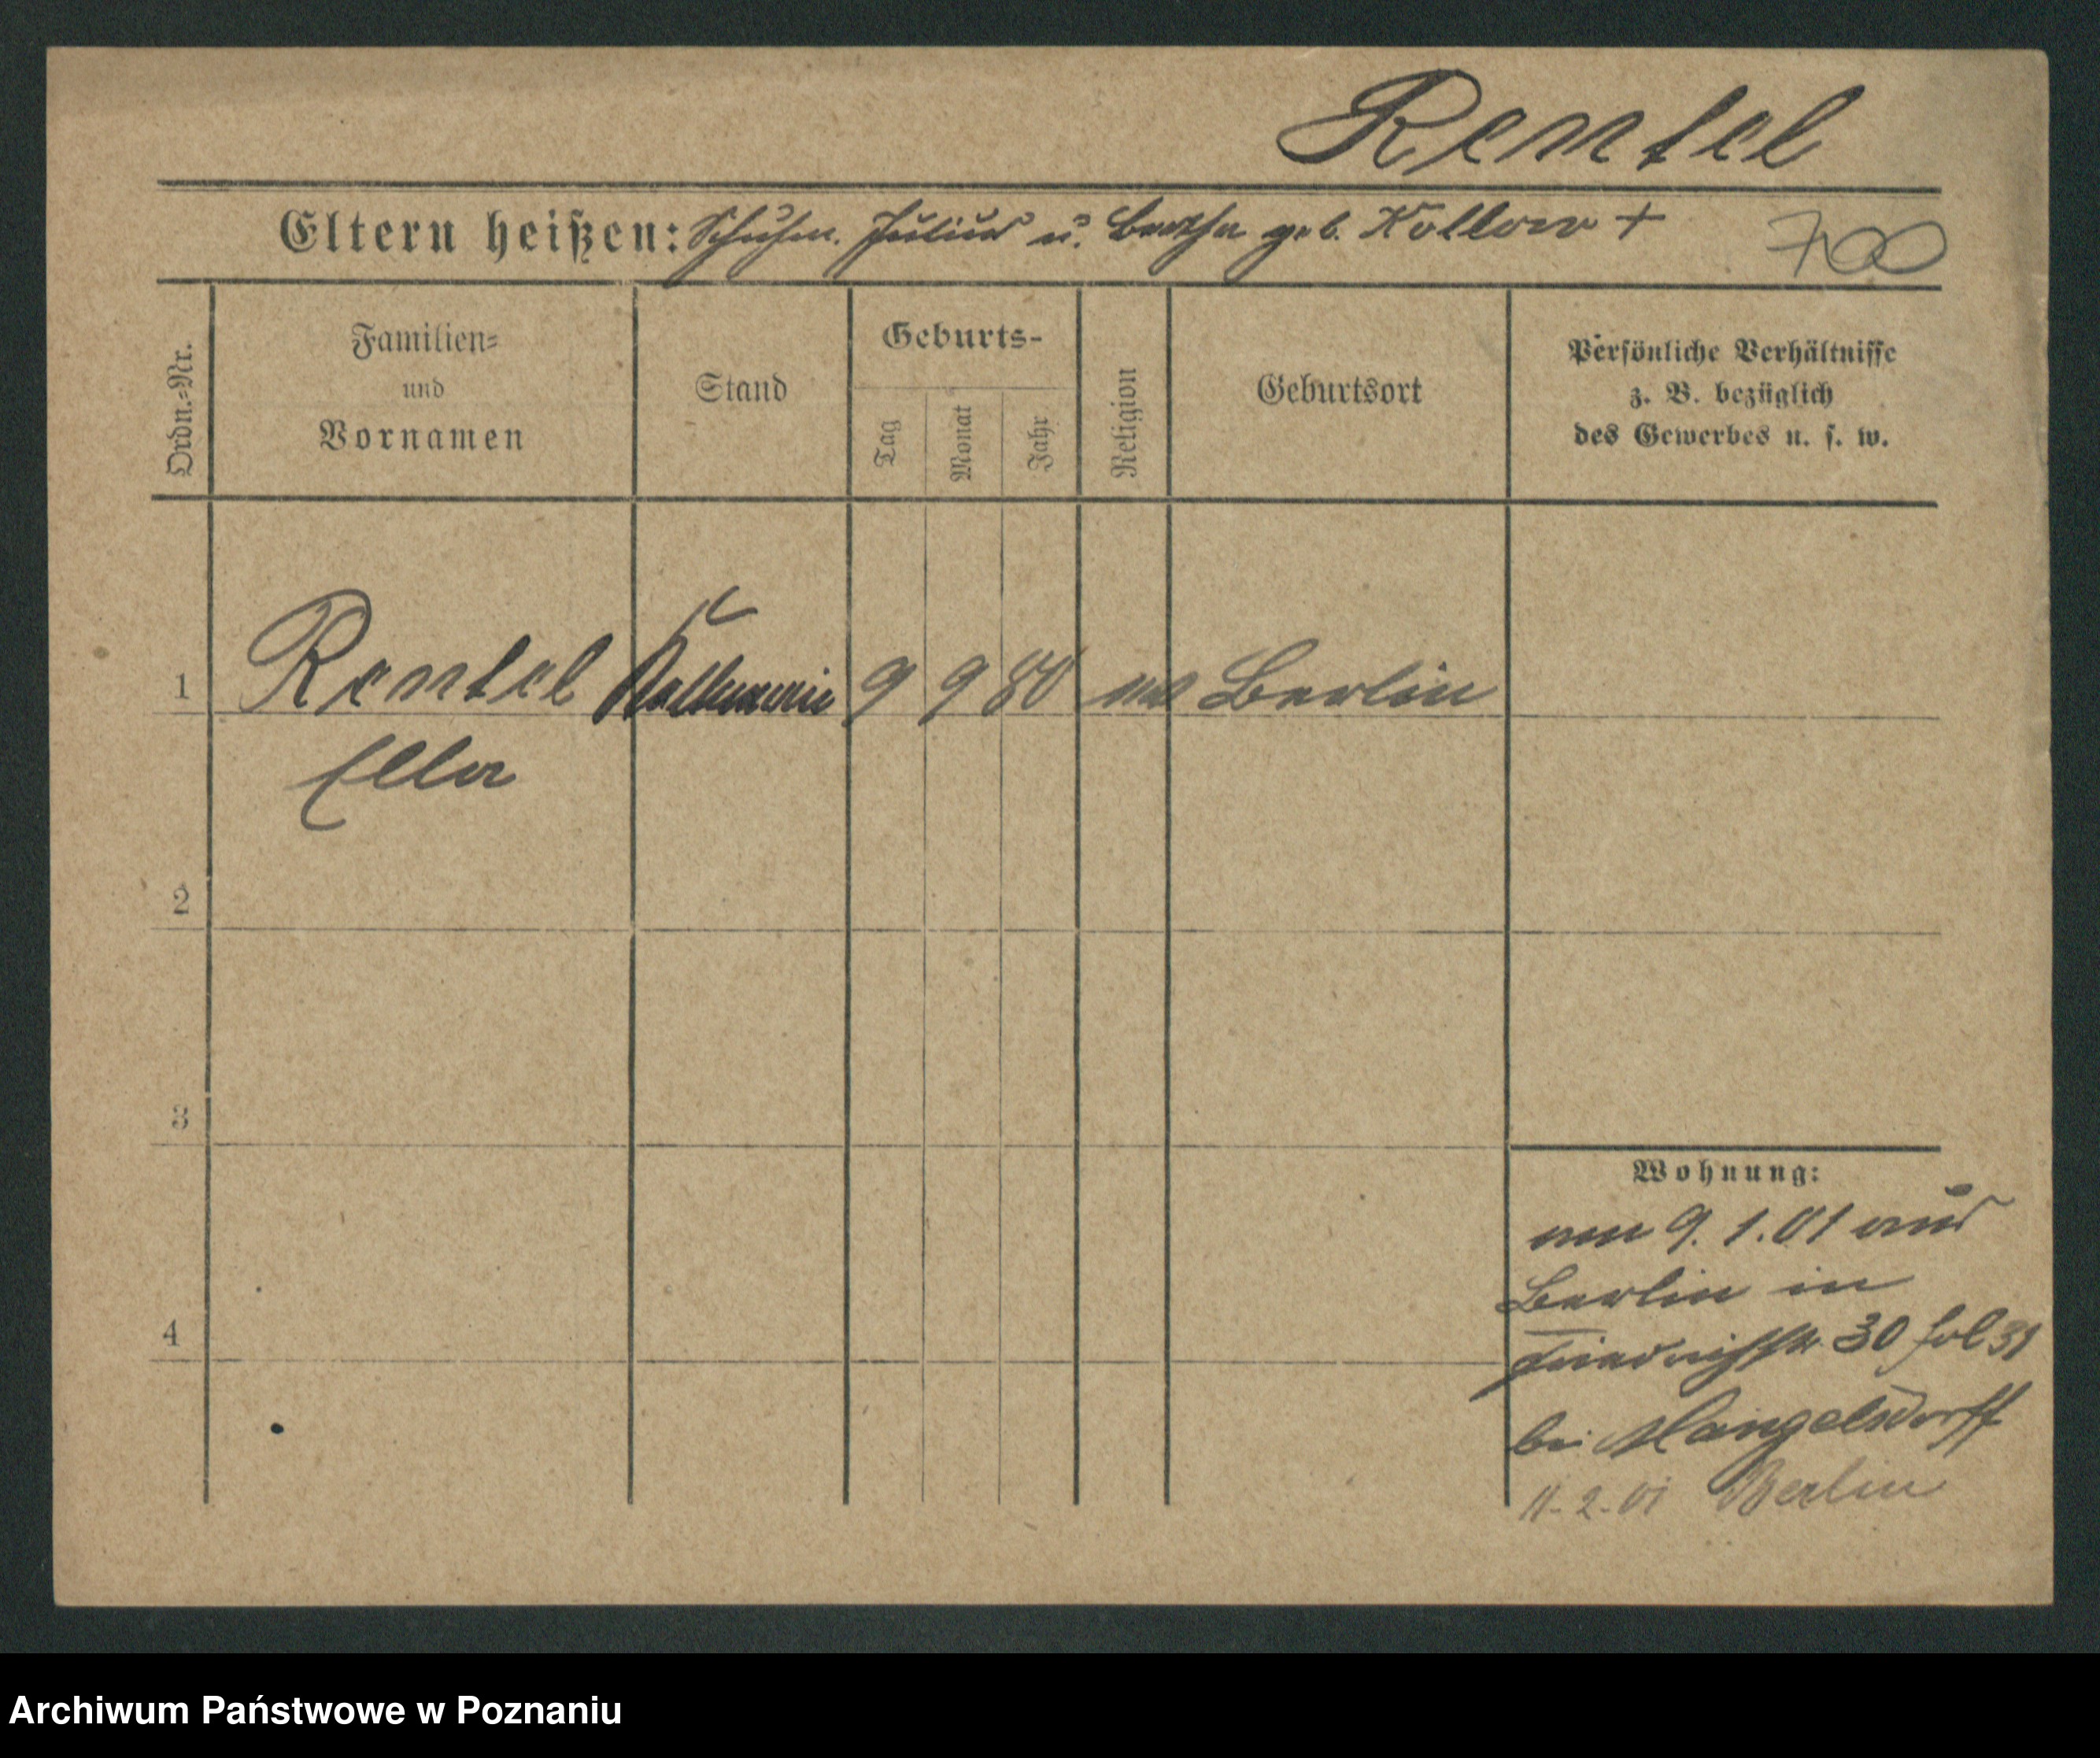 Rentel
Eltern heißen: Schuhm. Julius u. Bertha geb. Kollow +
700
Ordn.=Nr.
Familien=
und
Vornamen
Stand
Geburts-
Tag
Monat
Jahr
Religion
Geburtsort
Persönliche Verhältnisse
z. B. bezüglich
des Gewerbes u. s. w.
1 Rentel 9 9 80 Berlin
Ella
2
3
4
Wohnung:
am 9. 1. 01 aus
Berlin in
Friedrichstr. 30 fol 31
bei Mangelsdorff
11. 2. 01 Berlin
Archiwum Państwowe w Poznaniu